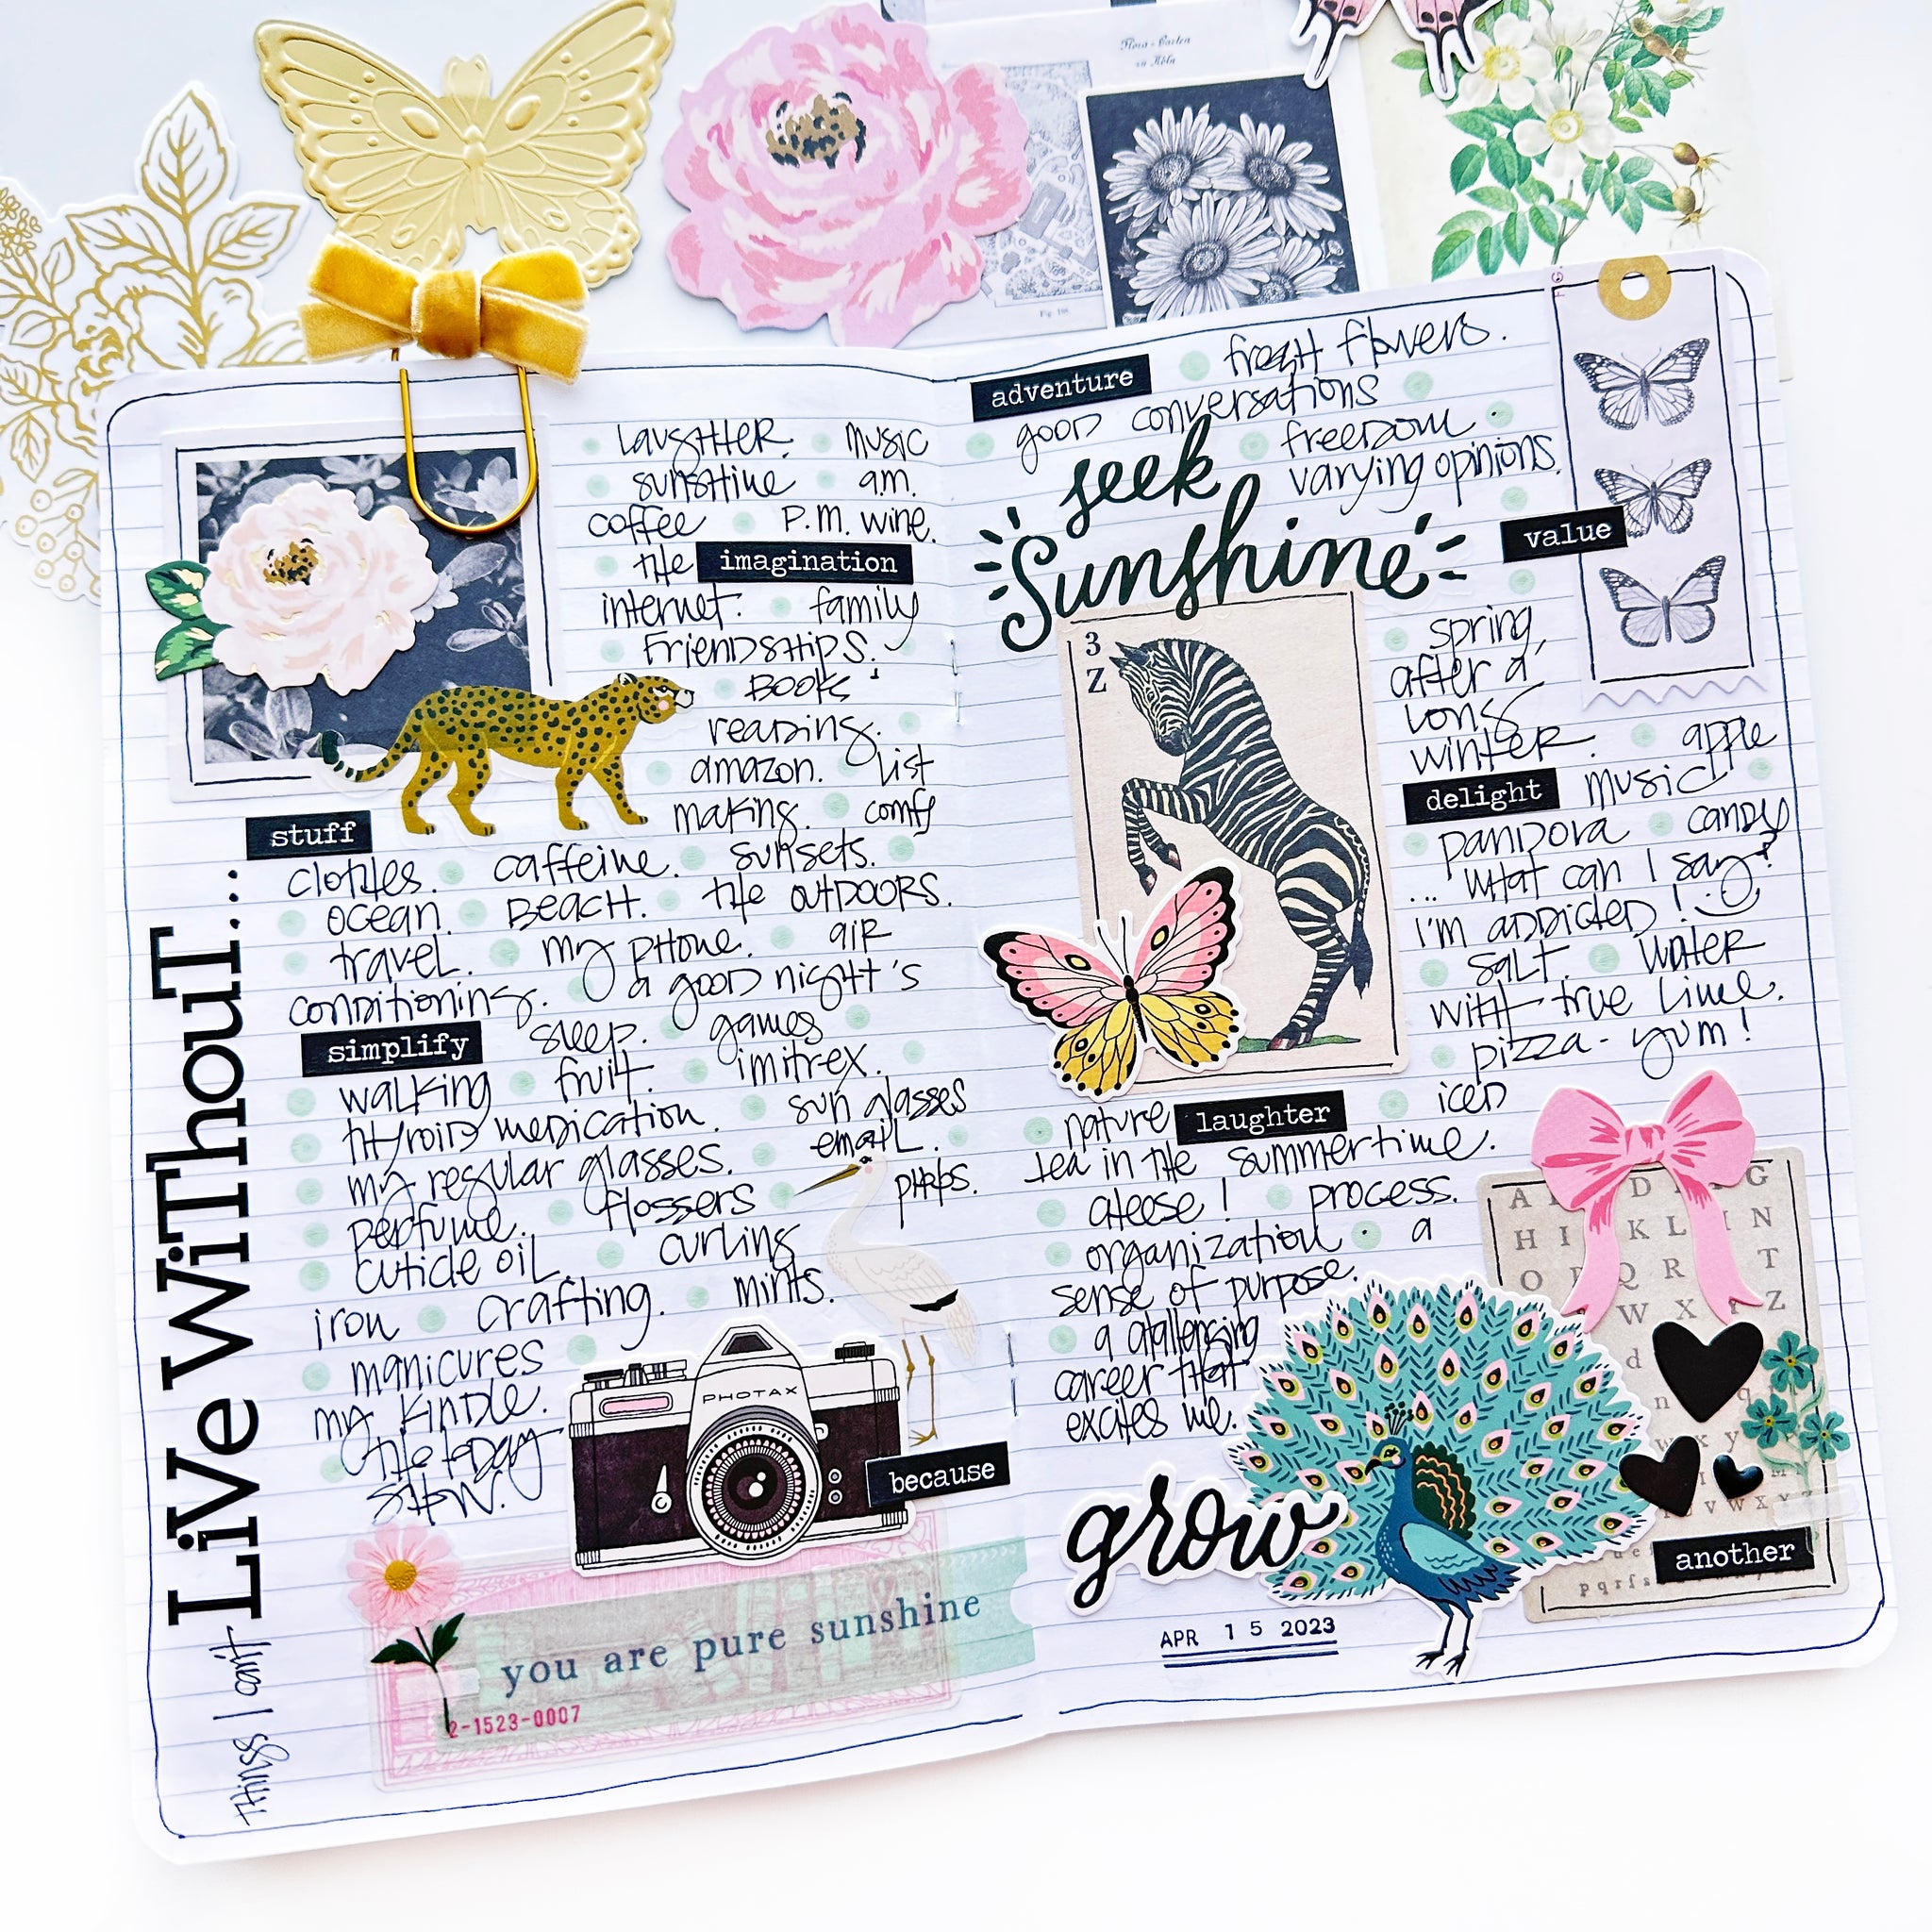 Flora-Garten
zu Köln
Fig. 188.
Things I can't
Live WiThouT...
laughter. music
sunshine a.m.
coffee P.M. wine.
the imagination
internet. family
Friendships.
Books
reading.
amazon. list
making. comfy
stuff
clothes. caffeine. sunsets.
ocean. Beach. the outdoors.
travel. my phone. air
conditioning. a good night's
simplify sleep. games
walking fruit. imitrex.
thyroid medication. sun glasses
my regular glasses. email.
perfume. flossers photos.
cuticle oil. curling
iron crafting. mints.
manicures
my kindle.
the today
show.
PHOTAX
because
you are pure sunshine
2-1523-0007
adventure fresh flowers.
good conversations
seek freedom.
varying opinions.
Sunshine
value
3
Z
spring,
after a
long
winter. apple
delight music
pandora candy
... what can I say?
i'm addicted!
salt. water
with true lime.
pizza - yum!
nature laughter iced
tea in the summertime.
cheese! process.
organization. a
sense of purpose.
a challenging
career that
excites me.
grow
APR 15 2023
A D G
H I K L N
O P Q R T
W X Y Z
d
n q
w x y
V W X Y Z
p q r s
another